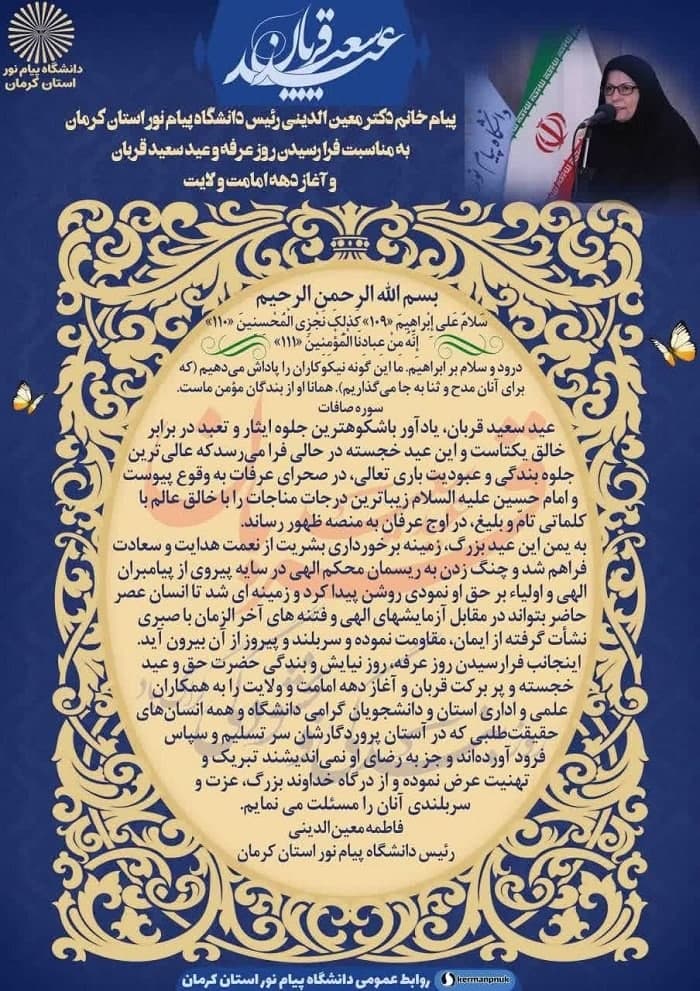 دانشگاه پیام نور
استان کرمان
عید سعید قربان
پیام خانم دکتر معین الدینی رئیس دانشگاه پیام نور استان کرمان
به مناسبت فرا رسیدن روز عرفه و عید سعید قربان
و آغاز دهه امامت و ولایت
بسم الله الرحمن الرحیم
سَلَامٌ عَلَى إِبْرَاهِيمَ «۱۰۹» كَذَٰلِكَ نَجْزِي الْمُحْسِنِينَ «۱۱۰»
إِنَّهُ مِنْ عِبَادِنَا الْمُؤْمِنِينَ «۱۱۱»
درود و سلام بر ابراهیم. ما این گونه نیکوکاران را پاداش می‌دهیم (که
برای آنان مدح و ثنا به جا می‌گذاریم). همانا او از بندگان مؤمن ماست.
سوره صافات
عید سعید قربان، یادآور باشکوهترین جلوه ایثار و تعبد در برابر
خالق یکتاست و این عید خجسته در حالی فرا می‌رسد که عالی ترین
جلوه بندگی و عبودیت باری تعالی، در صحرای عرفات به وقوع پیوست
و امام حسین علیه السلام زیباترین درجات مناجات را با خالق عالم با
کلماتی تام و بلیغ، در اوج عرفان به منصه ظهور رساند.
به یمن این عید بزرگ، زمینه برخورداری بشریت از نعمت هدایت و سعادت
فراهم شد و چنگ زدن به ریسمان محکم الهی در سایه پیروی از پیامبران
الهی و اولیاء بر حق او نمودی روشن پیدا کرد و زمینه ای شد تا انسان عصر
حاضر بتواند در مقابل آزمایشهای الهی و فتنه های آخر الزمان با صبری
نشأت گرفته از ایمان، مقاومت نموده و سربلند و پیروز از آن بیرون آید.
اینجانب فرارسیدن روز عرفه، روز نیایش و بندگی حضرت حق و عید
خجسته و پر برکت قربان و آغاز دهه امامت و ولایت را به همکاران
علمی و اداری استان و دانشجویان گرامی دانشگاه و همه انسان‌های
حقیقت‌طلبی که در آستان پروردگارشان سر تسلیم و سپاس
فرود آورده‌اند و جز به رضای او نمی‌اندیشند تبریک و
تهنیت عرض نموده و از درگاه خداوند بزرگ، عزت و
سربلندی آنان را مسئلت می نمایم.
فاطمه معین الدینی
رئیس دانشگاه پیام نور استان کرمان
kermanpnuk روابط عمومی دانشگاه پیام نور استان کرمان